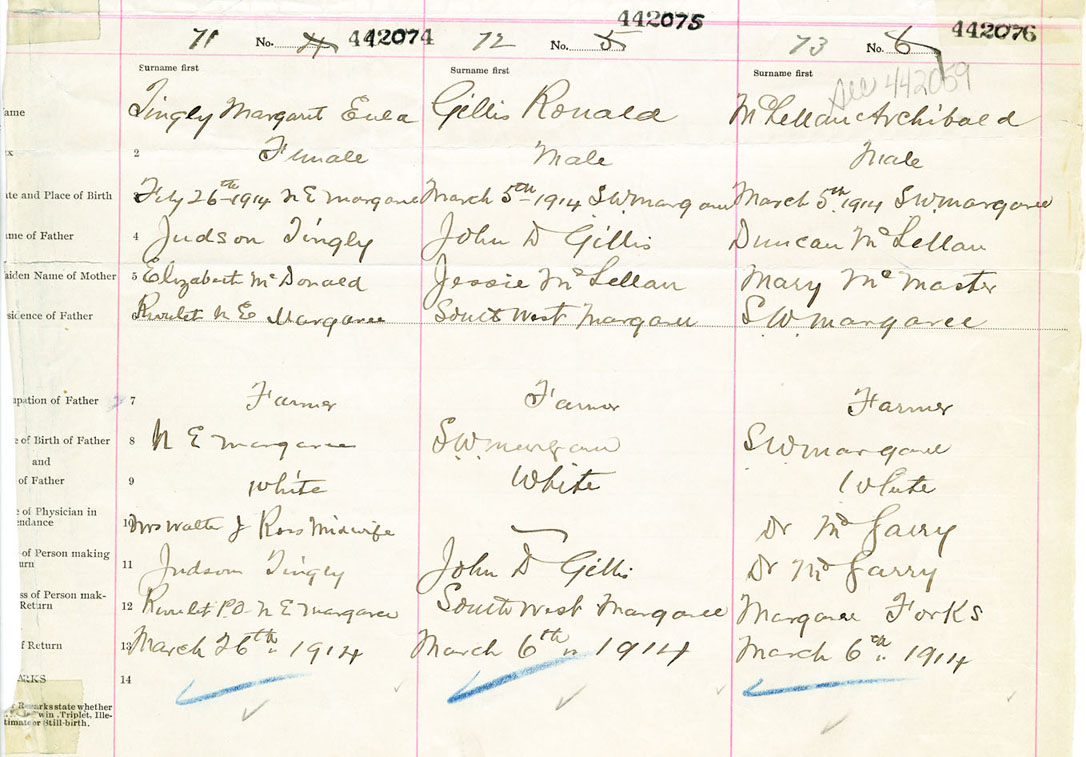 71 No. 4 442074 72 No. 5 442075 73 No. 6 442076
Surname first Surname first Surname first
See 442059
ame Tingly Margaret Eula Gillis Ronald McLellan Archibald
x 2 Female Male Male
ate and Place of Birth 3 Feby 26th 1914 N E Margaree March 5th 1914 S.W. Margaree March 5th 1914 S.W. Margaree
me of Father 4 Judson Tingly John D Gillis Duncan McLellan
aiden Name of Mother 5 Elizabeth McDonald Jessie McLellan Mary McMaster
sidence of Father 6 Rivulet N E Margaree South West Margaree S.W. Margaree
upation of Father 7 Farmer Farmer Farmer
e of Birth of Father 8 N E Margaree S.W. Margaree S.W. Margaree
and
of Father 9 White White White
e of Physician in
endance 10 Mrs Walter J Ross Midwife Dr McGarry
of Person making
urn 11 Judson Tingly John D Gillis Dr McGarry
ss of Person mak-
Return 12 Rivulet P.O. N E Margaree South West Margaree Margaree Forks
f Return 13 March 26th 1914 March 6th 1914 March 6th 1914
ARKS 14
Remarks state whether
win, Triplet, Ille-
timate or Still-birth.